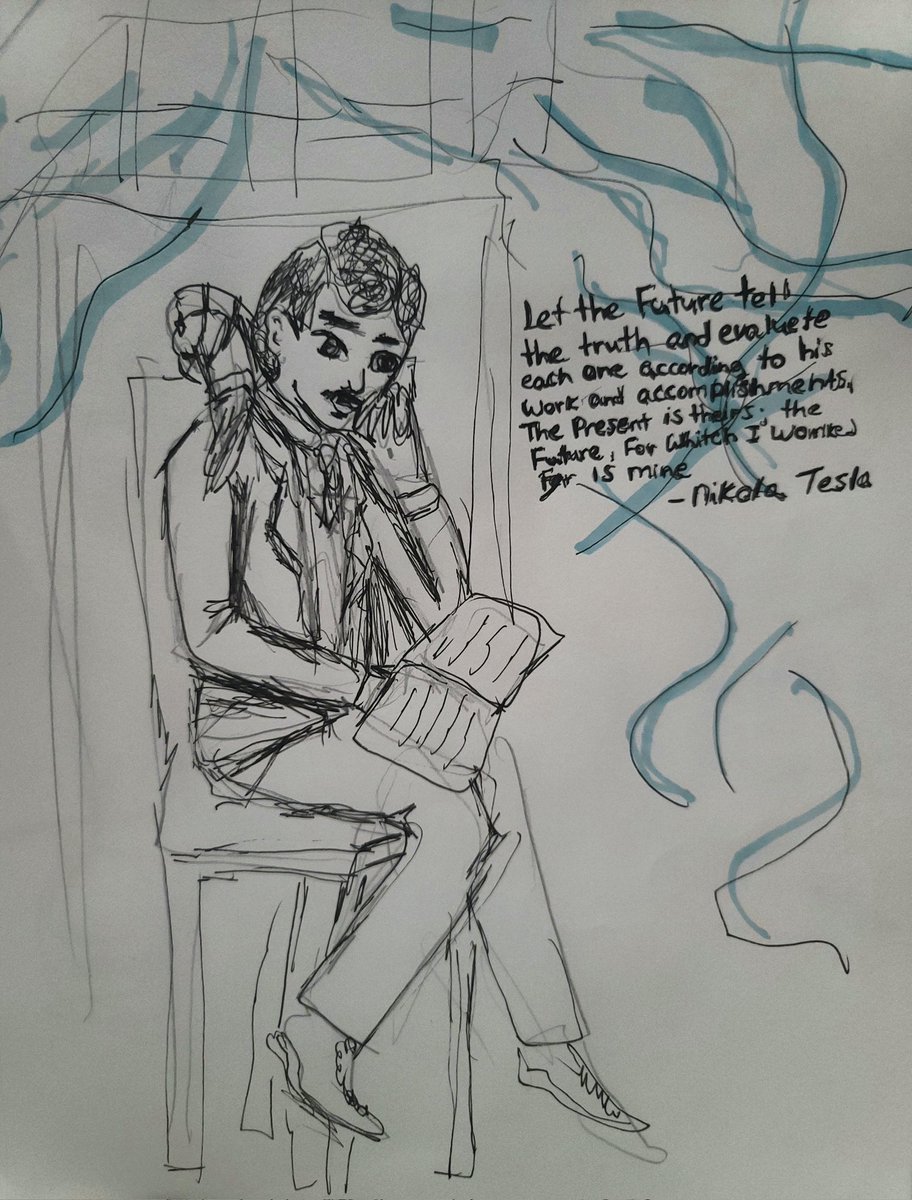 Let the Future tell
the truth and evaluete
each one according to his
work and accomplishments.
The Present is theirs; the
Future, For Whitch I Worked
For is mine
- Nikola Tesla